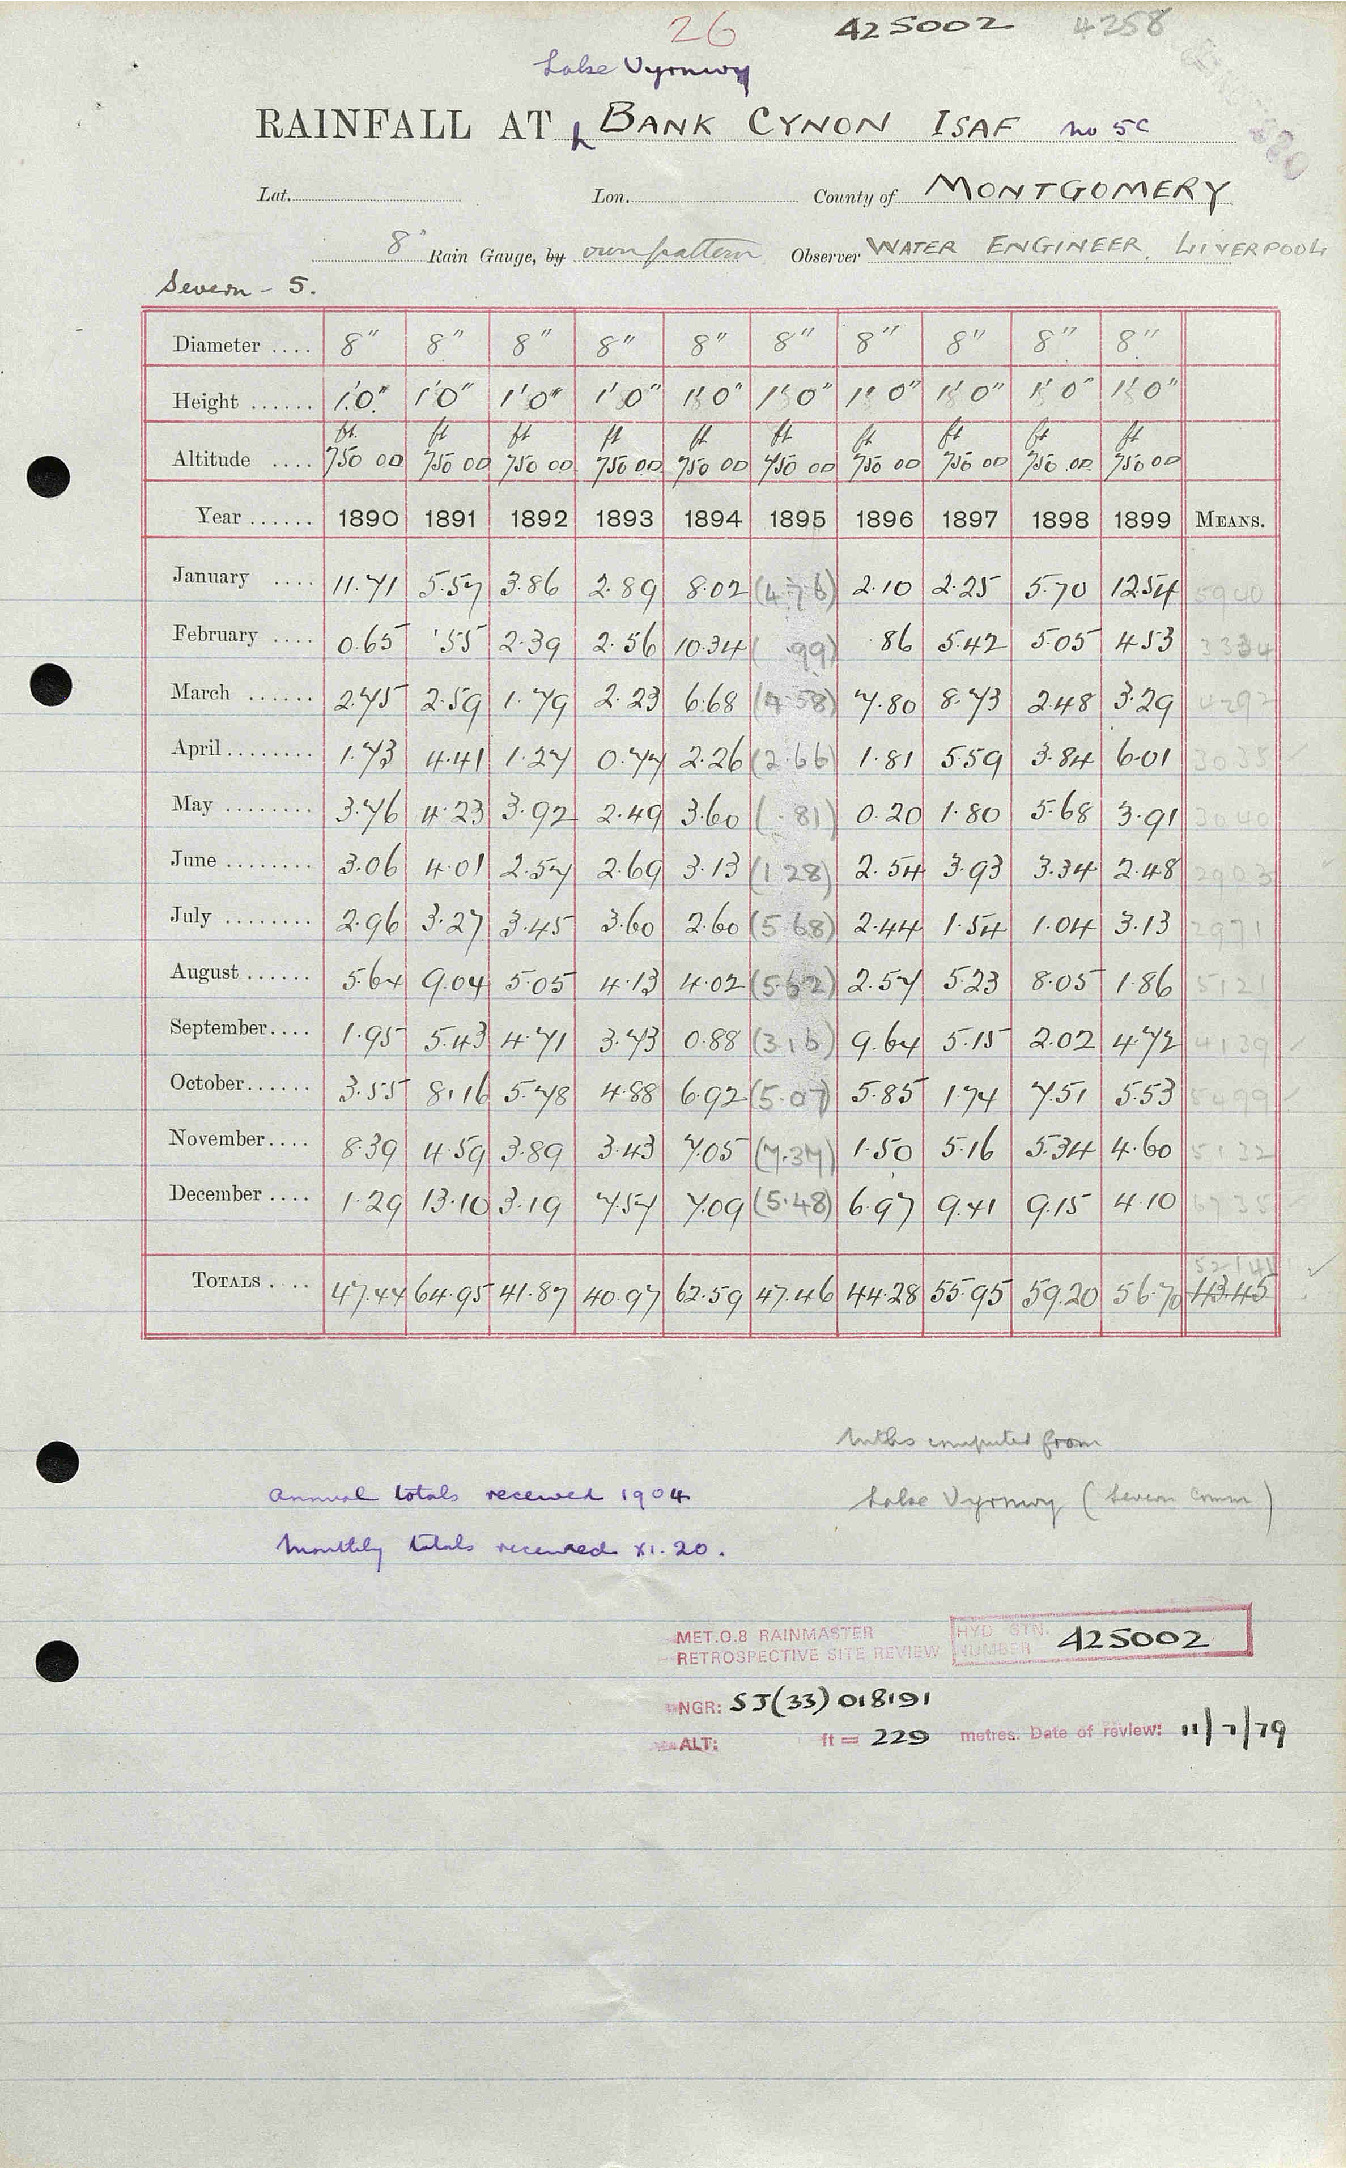 26 425002 4258
Lake Vyrnwy
RAINFALL AT BANK CYNON ISAF No 5C
Lat. Lon. County of MONTGOMERY
8" Rain Gauge, by own pattern Observer WATER ENGINEER. LIVERPOOL
Severn - 5.
Diameter .... 8" 8" 8" 8" 8" 8" 8" 8" 8" 8"
Height ...... 1'0" 1'0" 1'0" 1'0" 1'0" 1'0" 1'0" 1'0" 1'0" 1'0"
ft ft ft ft ft ft ft ft ft ft
Altitude .... 750 00 750 00 750 00 750 00 750 00 750 00 750 00 750 00 750 00 750 00
Year ...... 1890 1891 1892 1893 1894 1895 1896 1897 1898 1899 MEANS.
January .... 11.71 5.57 3.86 2.89 8.02 (4.76) 2.10 2.25 5.70 12.54 5940
February .... 0.65 .55 2.39 2.56 10.34 (.99) .86 5.42 5.05 4.53 3334
March ...... 2.75 2.59 1.79 2.23 6.68 (4.58) 7.80 8.73 2.48 3.29 4292
April ........ 1.73 4.41 1.27 0.77 2.26 (2.66) 1.81 5.59 3.84 6.01 3035
May ........ 3.76 4.23 3.92 2.49 3.60 (.81) 0.20 1.80 5.68 3.91 3040
June ........ 3.06 4.01 2.57 2.69 3.13 (1.28) 2.54 3.93 3.34 2.48 2903
July ........ 2.96 3.27 3.45 3.60 2.60 (5.68) 2.44 1.54 1.04 3.13 2971
August ...... 5.64 9.04 5.05 4.13 4.02 (5.62) 2.57 5.23 8.05 1.86 5121
September.... 1.95 5.43 4.71 3.73 0.88 (3.16) 9.64 5.15 2.02 4.72 4139
October...... 3.55 8.16 5.78 4.88 6.92 (5.07) 5.85 1.74 7.51 5.53 5499
November.... 8.39 4.59 3.89 3.43 7.05 (7.37) 1.50 5.16 5.34 4.60 5132
December .... 1.29 13.10 3.19 7.57 7.09 (5.48) 6.97 9.41 9.15 4.10 6735
52141
TOTALS .... 47.44 64.95 41.87 40.97 62.59 47.46 44.28 55.95 59.20 56.70 43.45
Mths computed from
Lake Vyrnwy (Severn Comm)
Annual totals received 1904
Monthly totals received XI.20.
MET.O.8 RAINMASTER
RETROSPECTIVE SITE REVIEW
HYD STN.
NUMBER 425002
NGR: SJ(33) 018191
ALT: ft = 229 metres. Date of review: 11/7/79